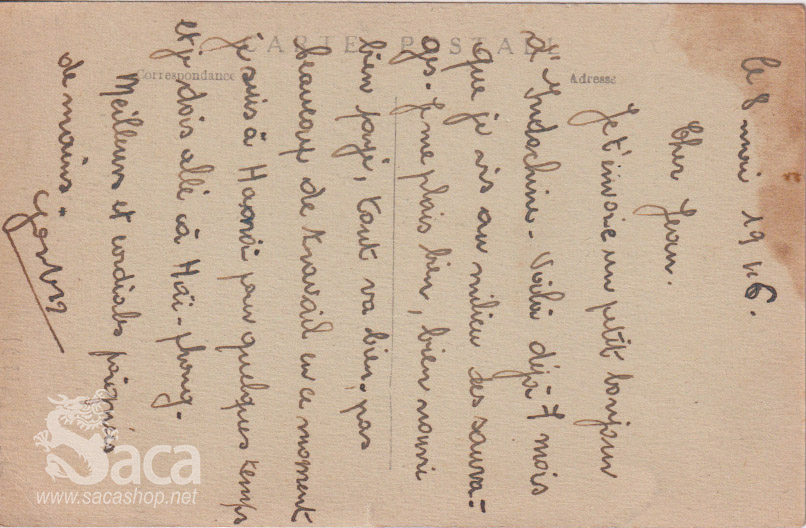 CARTE POSTALE
Correspondance
Adresse
le 8 mai 1946.
Cher Jean.
Je t'envoie un petit bonjour
d'Indochine - Voilà déjà 7 mois
que je vis au milieu des sauva-
ges. Je me plais bien, bien nourri
bien payé, tout va bien, pas
beaucoup de travail en ce moment
je suis à Hanoï pour quelques temps
et je dois allé à Haï-phong.
Meilleurs et cordiales poignées
de mains.
Saca
www.sacashop.net